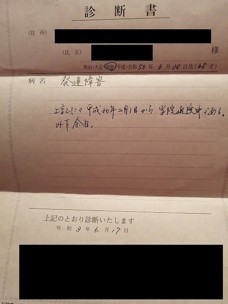 診断書
(住所)
(氏名) 様
明治・大正・昭和・平成・令和 54年6月28日生
病名 発達障害
上記により平成20年2月1日から当院通院中である。
以下余白。
上記のとおり診断いたします
令和3年6月17日